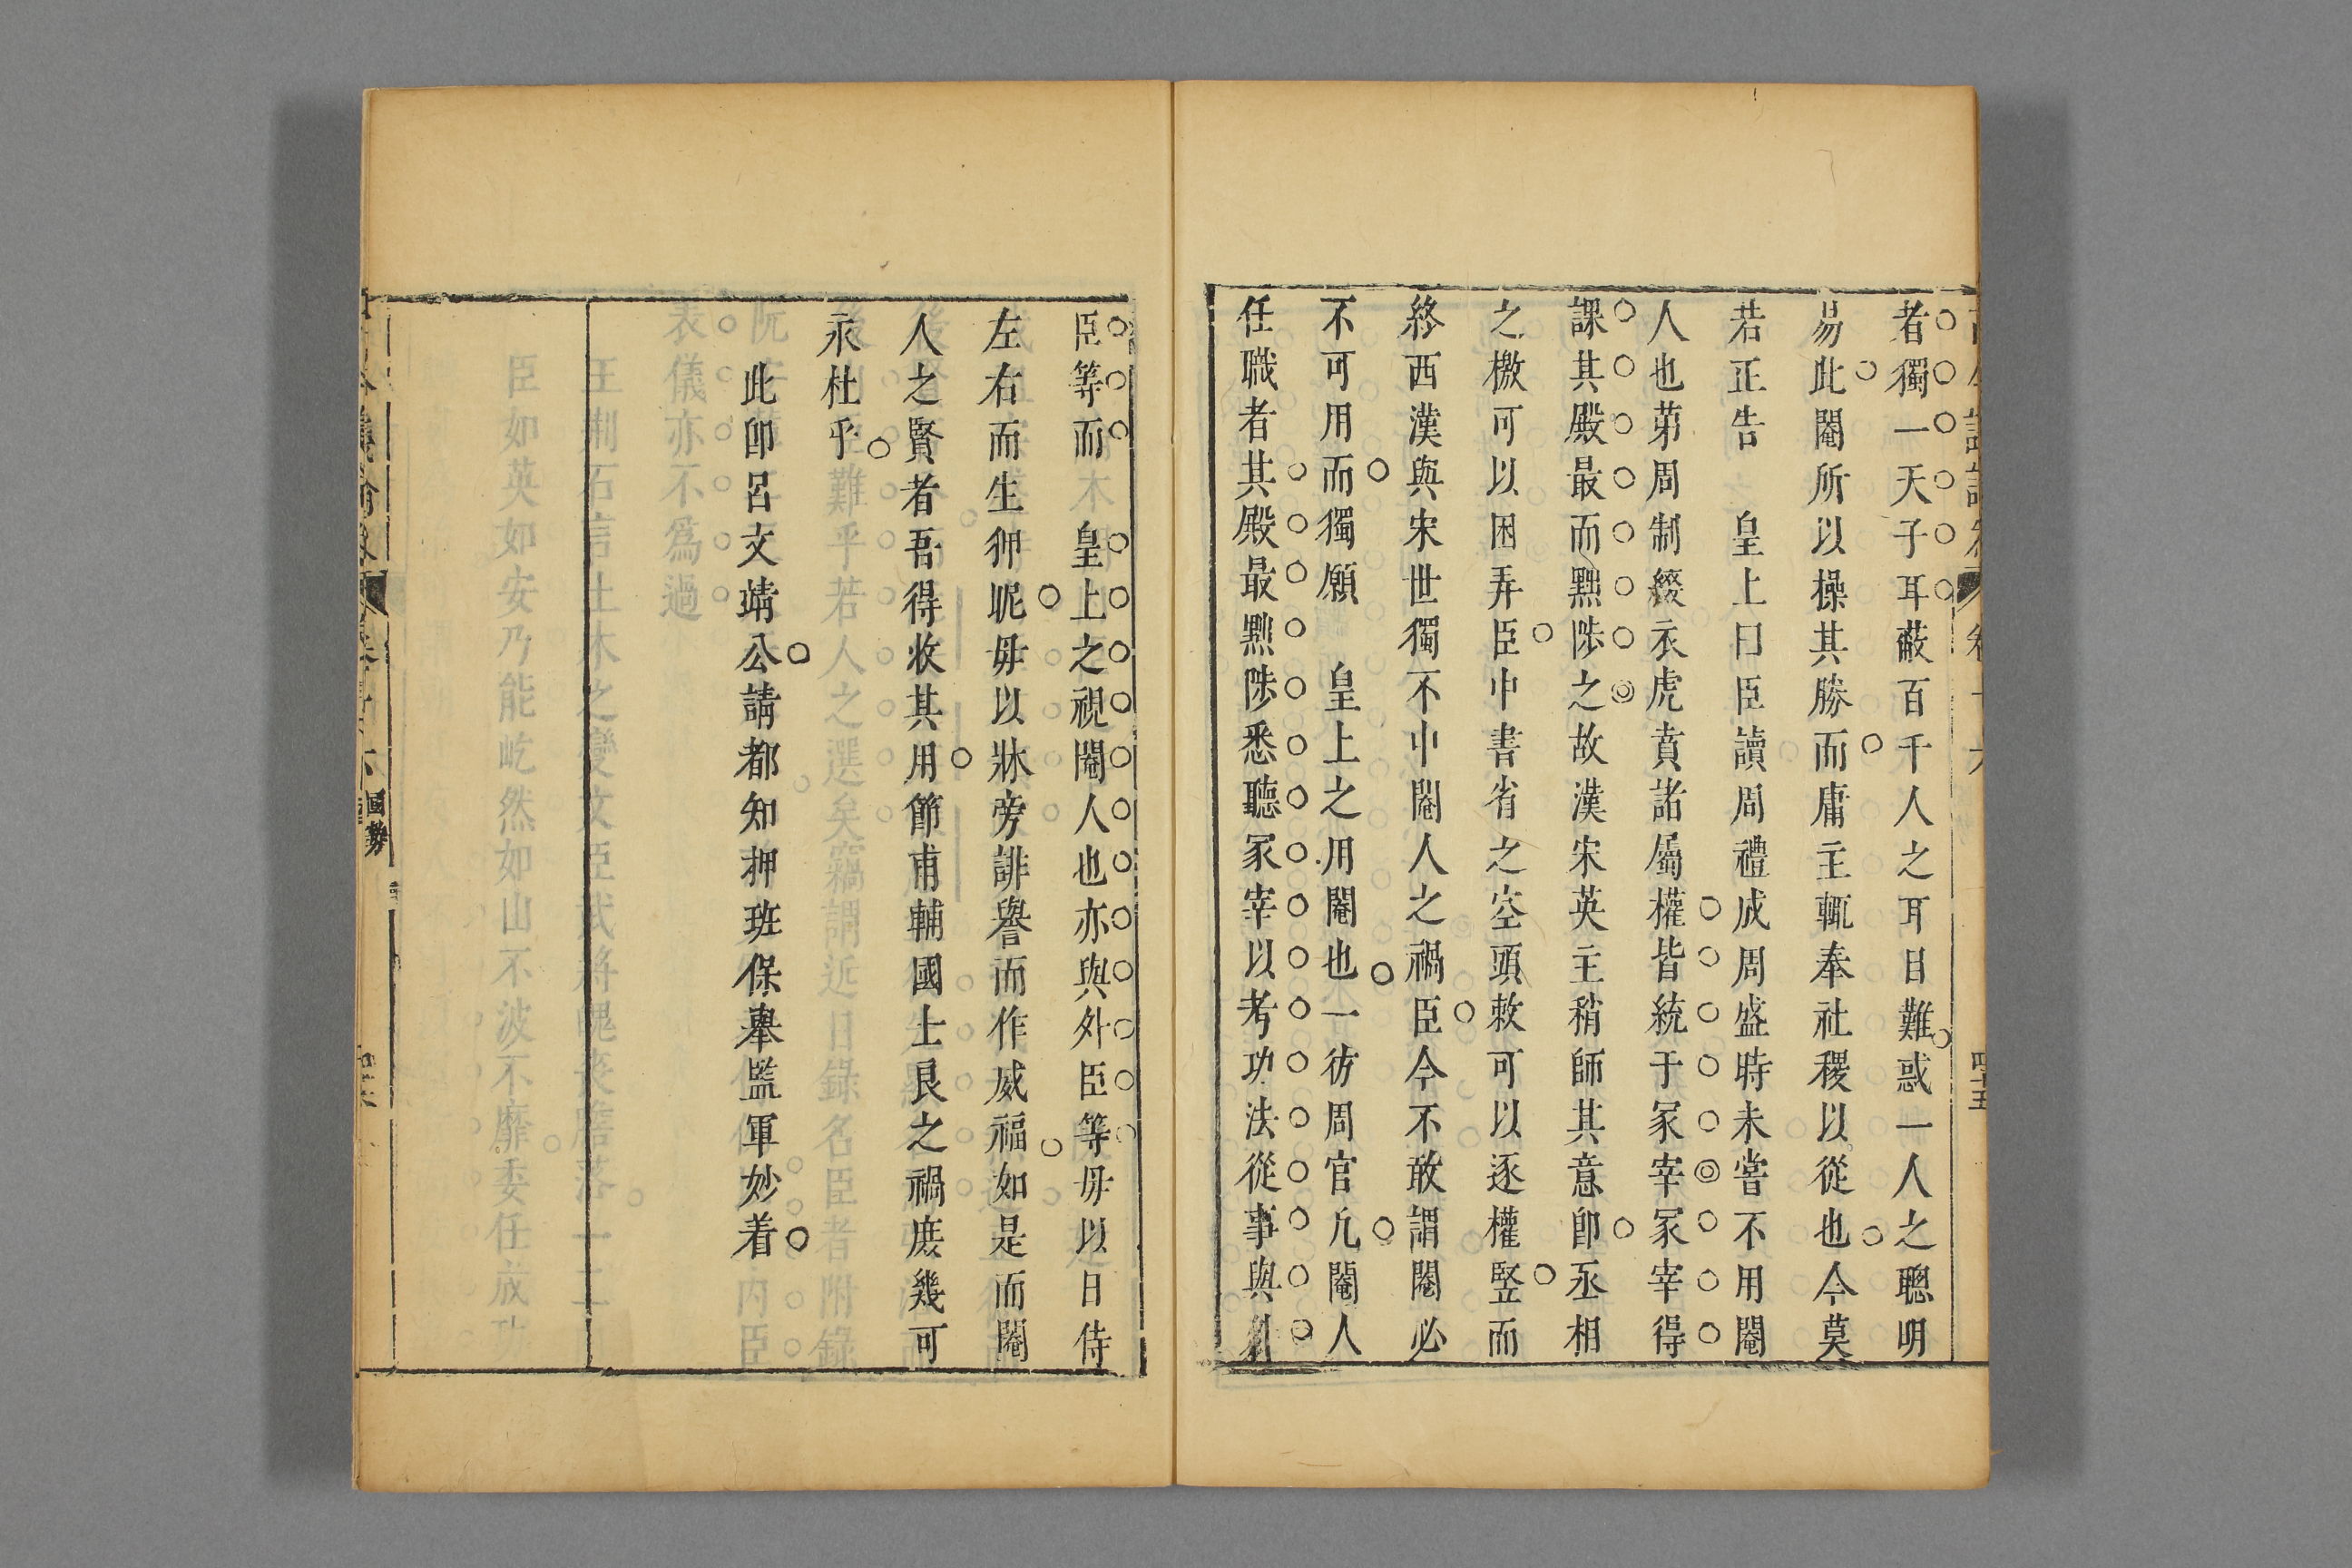 者獨一天子耳蔽百千人之耳目難惑一人之聰明
易此閹所以操其勝而庸主輒奉社稷以從也今莫
若正告 皇上曰臣讀周禮成周盛時未嘗不用閹
人也第周制綴衣虎賁諸屬權皆統于冢宰冢宰得
課其殿最而黜陟之故漢宋英主稍師其意卽丞相
之檄可以困弄臣中書省之空頭敕可以逐權竪而
終西漢與宋世獨不中閹人之禍臣今不敢謂閹必
不可用而獨願 皇上之用閹也一彷周官凡閹人
任職者其殿最黜陟悉聽冢宰以考功法從事與外
臣等而 皇上之視閹人也亦與外臣等毋以日侍
左右而生狎昵毋以牀旁誹譽而作威福如是而閹
人之賢者吾得收其用節甫輔國士良之禍庶幾可
永杜乎
此卽呂文靖公請都知押班保舉監軍妙着
國勢
四十五